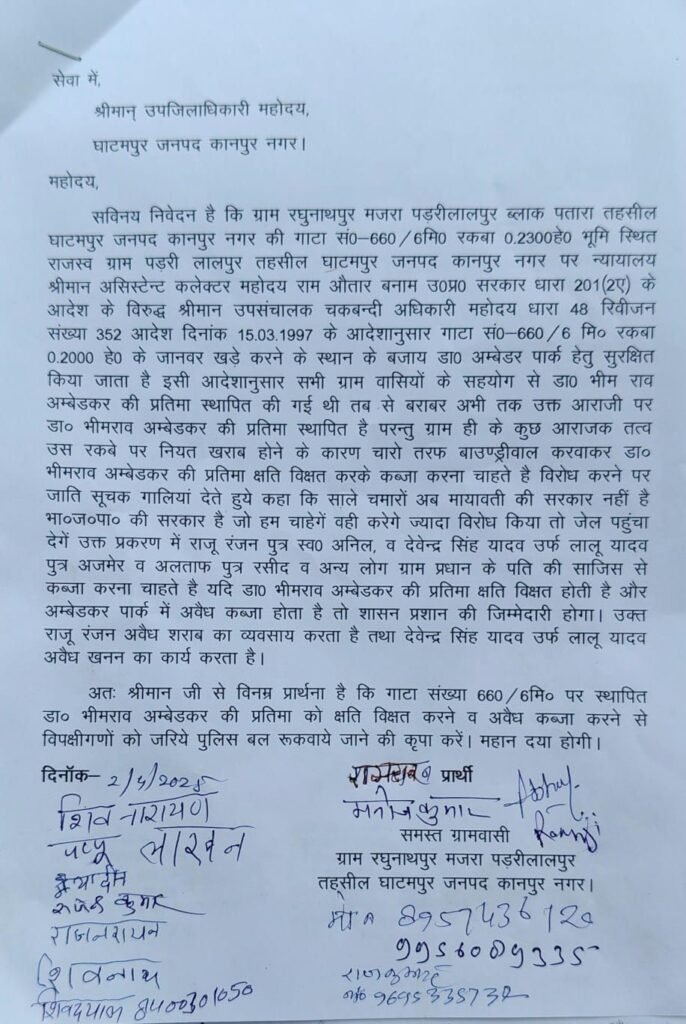 सेवा में,
श्रीमान् उपजिलाधिकारी महोदय,
घाटमपुर जनपद कानपुर नगर।
महोदय,
सविनय निवेदन है कि ग्राम रघुनाथपुर मजरा पड़रीलालपुर ब्लाक पतारा तहसील
घाटमपुर जनपद कानपुर नगर की गाटा सं0–660/6मि0 रकबा 0.2300हे0 भूमि स्थित
राजस्व ग्राम पड़री लालपुर तहसील घाटमपुर जनपद कानपुर नगर पर न्यायालय
श्रीमान असिस्टेन्ट कलेक्टर महोदय राम औतार बनाम उ0प्र0 सरकार धारा 201(2ए) के
आदेश के विरुद्ध श्रीमान उपसंचालक चकबन्दी अधिकारी महोदय धारा 48 रिवीजन
संख्या 352 आदेश दिनांक 15.03.1997 के आदेशानुसार गाटा सं0–660/6 मि० रकबा
0.2000 हे0 के जानवर खड़े करने के स्थान के बजाय डा0 अम्बेडर पार्क हेतु सुरक्षित
किया जाता है इसी आदेशानुसार सभी ग्राम वासियों के सहयोग से डा0 भीम राव
अम्बेडकर की प्रतिमा स्थापित की गई थी तब से बराबर अभी तक उक्त आराजी पर
डा० भीमराव अम्बेडकर की प्रतिमा स्थापित है परन्तु ग्राम ही के कुछ आराजक तत्व
उस रकबे पर नियत खराब होने के कारण चारो तरफ बाउण्ड्रीवाल करवाकर डा०
भीमराव अम्बेडकर की प्रतिमा क्षति विक्षत करके कब्जा करना चाहते है विरोध करने पर
जाति सूचक गालियां देते हुये कहा कि साले चमारों अब मायावती की सरकार नहीं है
भा०ज०पा० की सरकार है जो हम चाहेगें वही करेगे ज्यादा विरोध किया तो जेल पहुंचा
देगें उक्त प्रकरण में राजू रंजन पुत्र स्व0 अनिल, व देवेन्द्र सिंह यादव उर्फ लालू यादव
पुत्र अजमेर व अलताफ पुत्र रसीद व अन्य लोग ग्राम प्रधान के पति की साजिस से
कब्जा करना चाहते है यदि डा0 भीमराव अम्बेडकर की प्रतिमा क्षति विक्षत होती है और
अम्बेडकर पार्क में अवैध कब्जा होता है तो शासन प्रशान की जिम्मेदारी होगा। उक्त
राजू रंजन अवैध शराब का व्यवसाय करता है तथा देवेन्द्र सिंह यादव उर्फ लालू यादव
अवैध खनन का कार्य करता है।
अतः श्रीमान जी से विनम्र प्रार्थना है कि गाटा संख्या 660/6मि० पर स्थापित
डा० भीमराव अम्बेडकर की प्रतिमा को क्षति विक्षत करने व अवैध कब्जा करने से
विपक्षीगणों को जरिये पुलिस बल रूकवाये जाने की कृपा करें। महान दया होगी।
दिनॉक– 2/4/2025 प्रार्थी
शिव नारायण मनोज कुमार Abhay
पप्पू लाखन समस्त ग्रामवासी
ग्राम रघुनाथपुर मजरा पड़रीलालपुर
तहसील घाटमपुर जनपद कानपुर नगर।
राजेश कुमार
राजनरायन
8957436120
9956089335
शिवनाथ राजकुमार
शिवदयाल 8400301050 मो0 9695335732